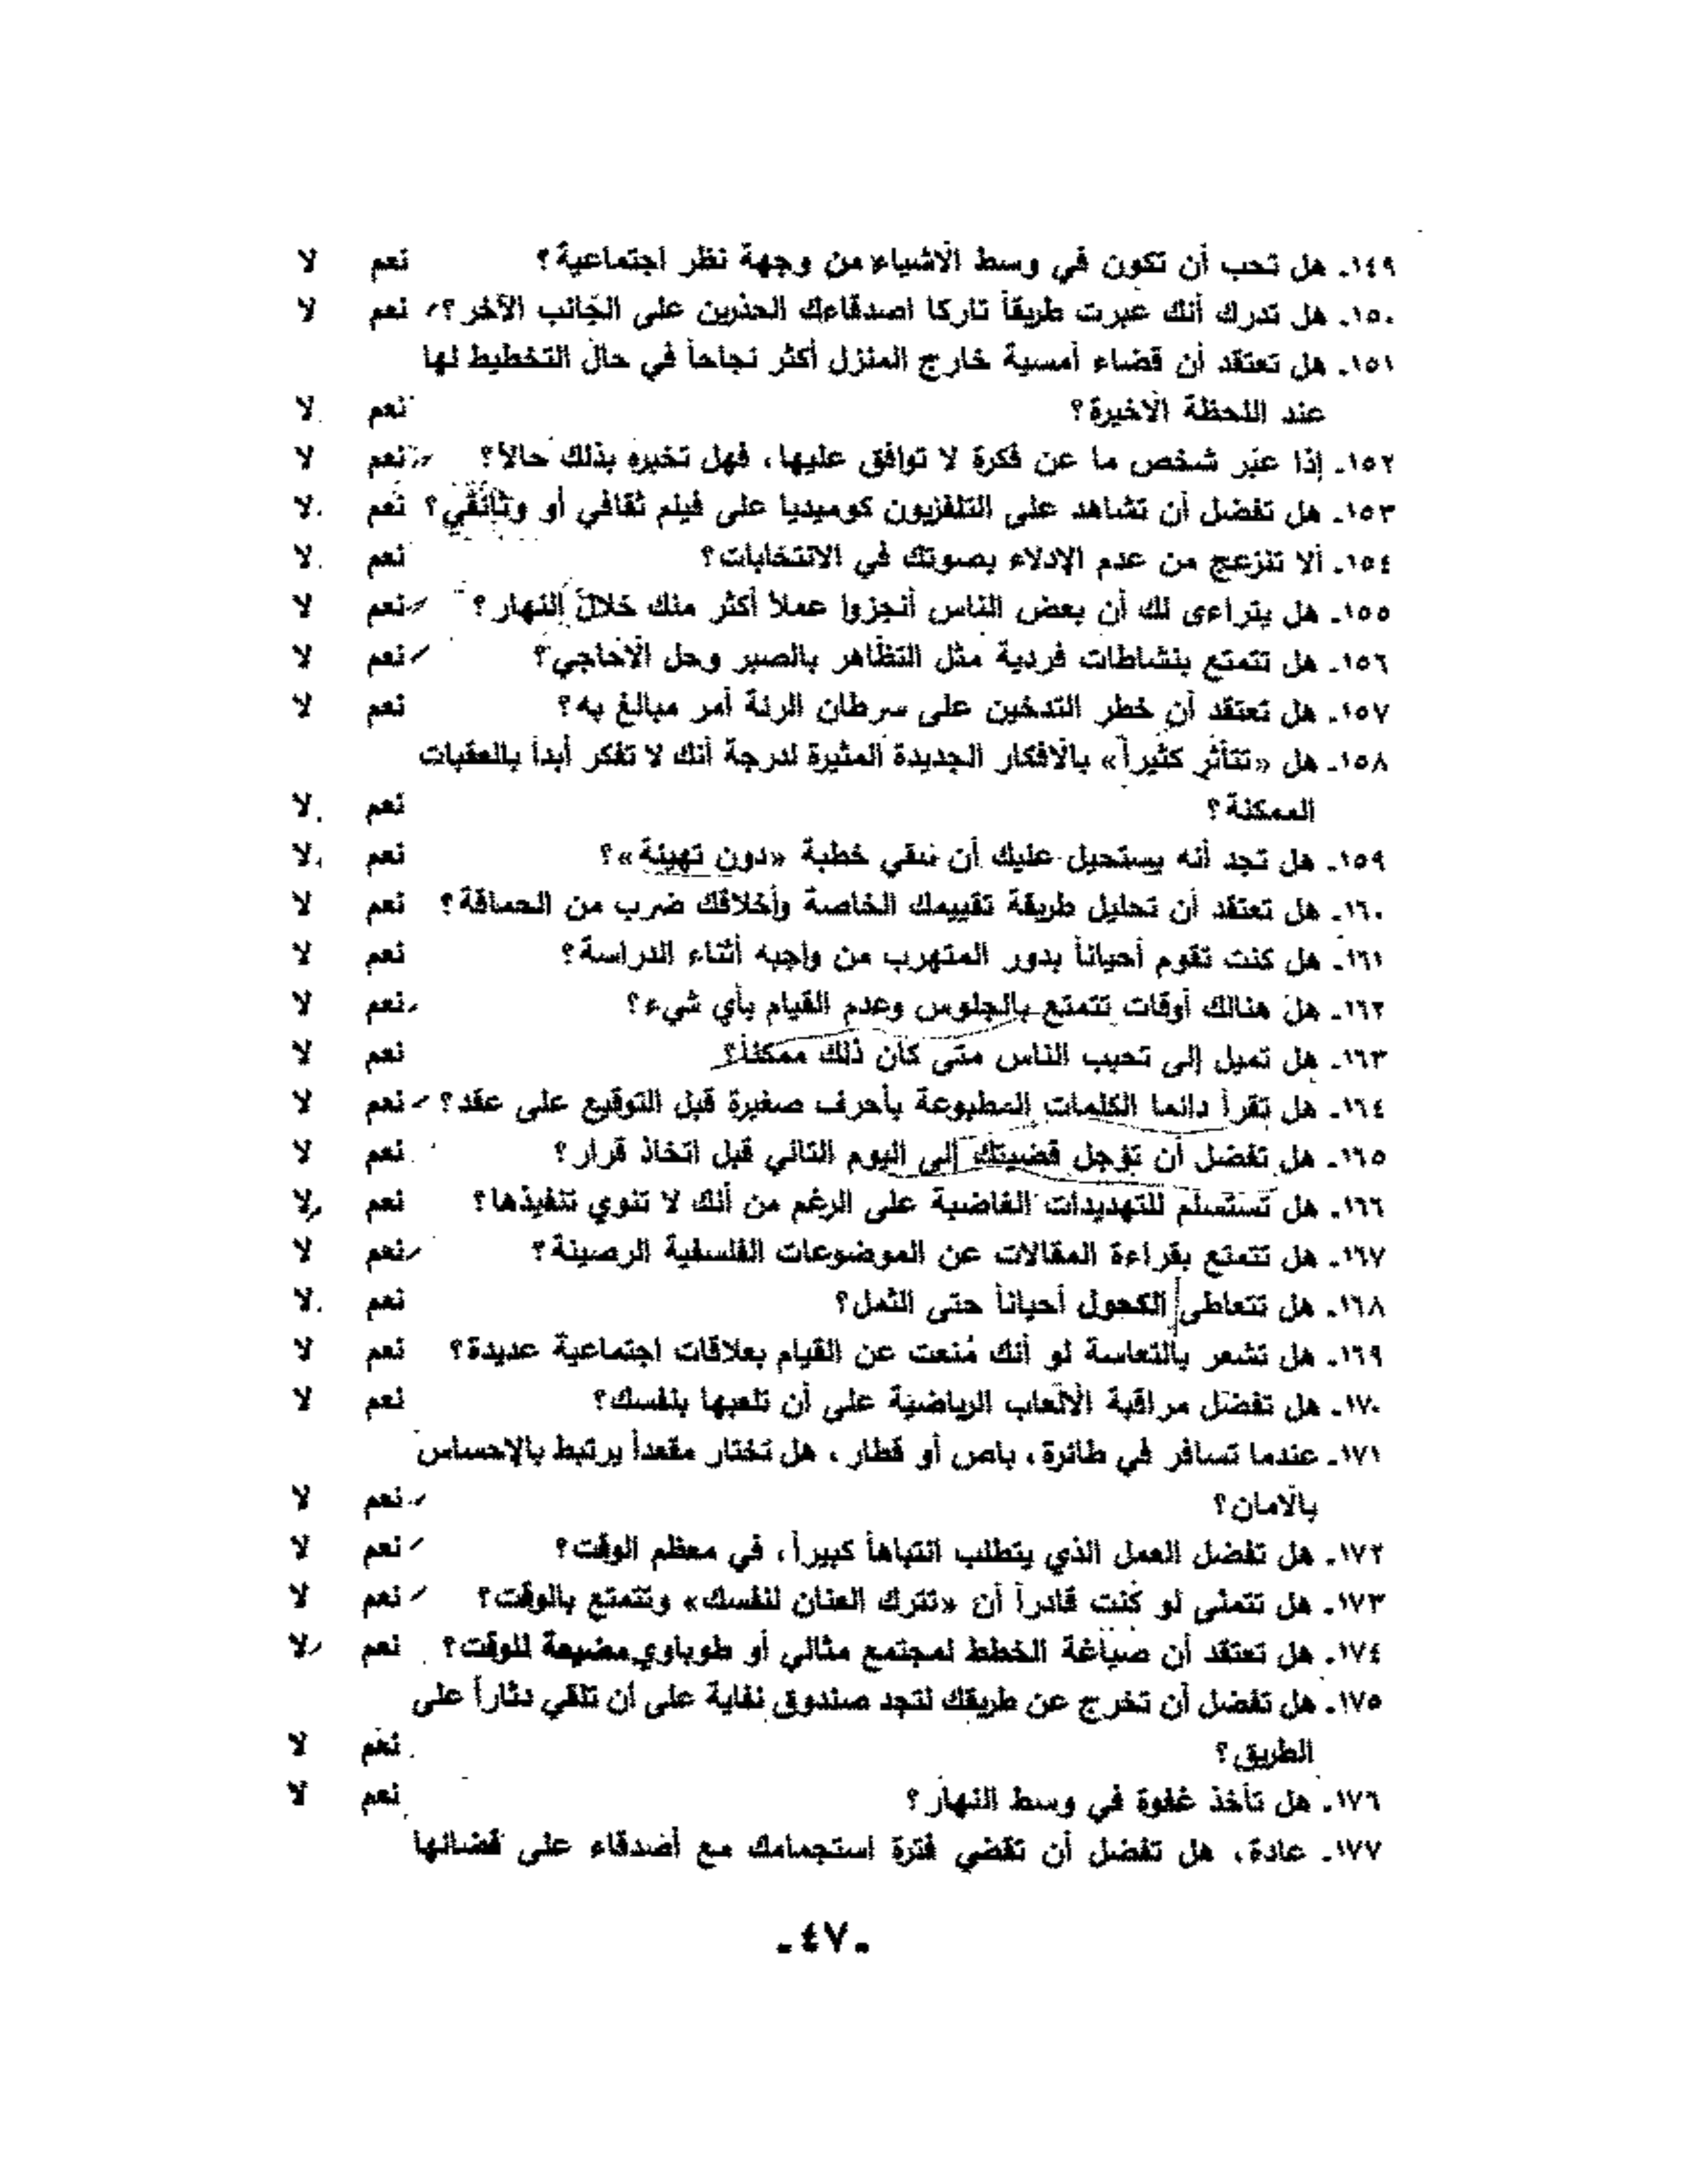 ١٤٩. هل تحب أن تكون في وسط الأشياء من وجهة نظر اجتماعية؟ نعم لا
١٥٠. هل تدرك أنك عبرت طريقاً تاركا اصدقاءك الحذرين على الجانب الآخر؟ نعم لا
١٥١. هل تعتقد أن قضاء أمسية خارج المنزل أكثر نجاحاً في حال التخطيط لها
عند اللحظة الأخيرة؟ نعم لا
١٥٢. إذا عبّر شخص ما عن فكرة لا توافق عليها، فهل تخبره بذلك حالاً؟ نعم لا
١٥٣. هل تفضل أن تشاهد على التلفزيون كوميديا على فيلم ثقافي أو وثائقي؟ نعم لا
١٥٤. ألا تنزعج من عدم الإدلاء بصوتك في الانتخابات؟ نعم لا
١٥٥. هل يتراءى لك أن بعض الناس أنجزوا عملاً أكثر منك خلال النهار؟ نعم لا
١٥٦. هل تتمتع بنشاطات فردية مثل التظاهر بالصبر وحل الأحاجي؟ نعم لا
١٥٧. هل تعتقد أن خطر التدخين على سرطان الرئة أمر مبالغ به؟ نعم لا
١٥٨. هل «تتأثر كثيراً» بالأفكار الجديدة المثيرة لدرجة أنك لا تفكر أبداً بالعقبات
الممكنة؟ نعم لا
١٥٩. هل تجد أنه يستحيل عليك أن تلقي خطبة «دون تهيئة»؟ نعم لا
١٦٠. هل تعتقد أن تحليل طريقة تقييمك الخاصة وأخلاقك ضرب من الحماقة؟ نعم لا
١٦١. هل كنت تقوم أحياناً بدور المتهرب من واجبه أثناء الدراسة؟ نعم لا
١٦٢. هل هنالك أوقات تتمتع بالجلوس وعدم القيام بأي شيء؟ نعم لا
١٦٣. هل تميل إلى تجيب الناس متى كان ذلك ممكناً؟ نعم لا
١٦٤. هل تقرأ دائما الكلمات المطبوعة بأحرف صغيرة قبل التوقيع على عقد؟ نعم لا
١٦٥. هل تفضل أن تؤجل قضيتك إلى اليوم التالي قبل اتخاذ قرار؟ نعم لا
١٦٦. هل تستسلم للتهديدات الغاضبة على الرغم من أنك لا تنوي تنفيذها؟ نعم لا
١٦٧. هل تتمتع بقراءة المقالات عن الموضوعات الفلسفية الرصينة؟ نعم لا
١٦٨. هل تتعاطى الكحول أحياناً حتى الثمل؟ نعم لا
١٦٩. هل تشعر بالتعاسة لو أنك مُنعت عن القيام بعلاقات اجتماعية عديدة؟ نعم لا
١٧٠. هل تفضل مراقبة الألعاب الرياضية على أن تلعبها بنفسك؟ نعم لا
١٧١. عندما تسافر في طائرة، باص أو قطار، هل تختار مقعداً يرتبط بالإحساس
بالأمان؟ نعم لا
١٧٢. هل تفضل العمل الذي يتطلب انتباهاً كبيراً، في معظم الوقت؟ نعم لا
١٧٣. هل تتمنى لو كنت قادراً أن «تترك العنان لنفسك» وتتمتع بالوقت؟ نعم لا
١٧٤. هل تعتقد أن صياغة الخطط لمجتمع مثالي أو طوباوي مضيعة للوقت؟ نعم لا
١٧٥. هل تفضل أن تخرج عن طريقك لتجد صندوق نفاية على أن تلقي دثاراً على
الطريق؟ نعم لا
١٧٦. هل تأخذ غفوة في وسط النهار؟ نعم لا
١٧٧. عادة، هل تفضل أن تقضي فترة استجمامك مع أصدقاء على قضائها
-٤٧-